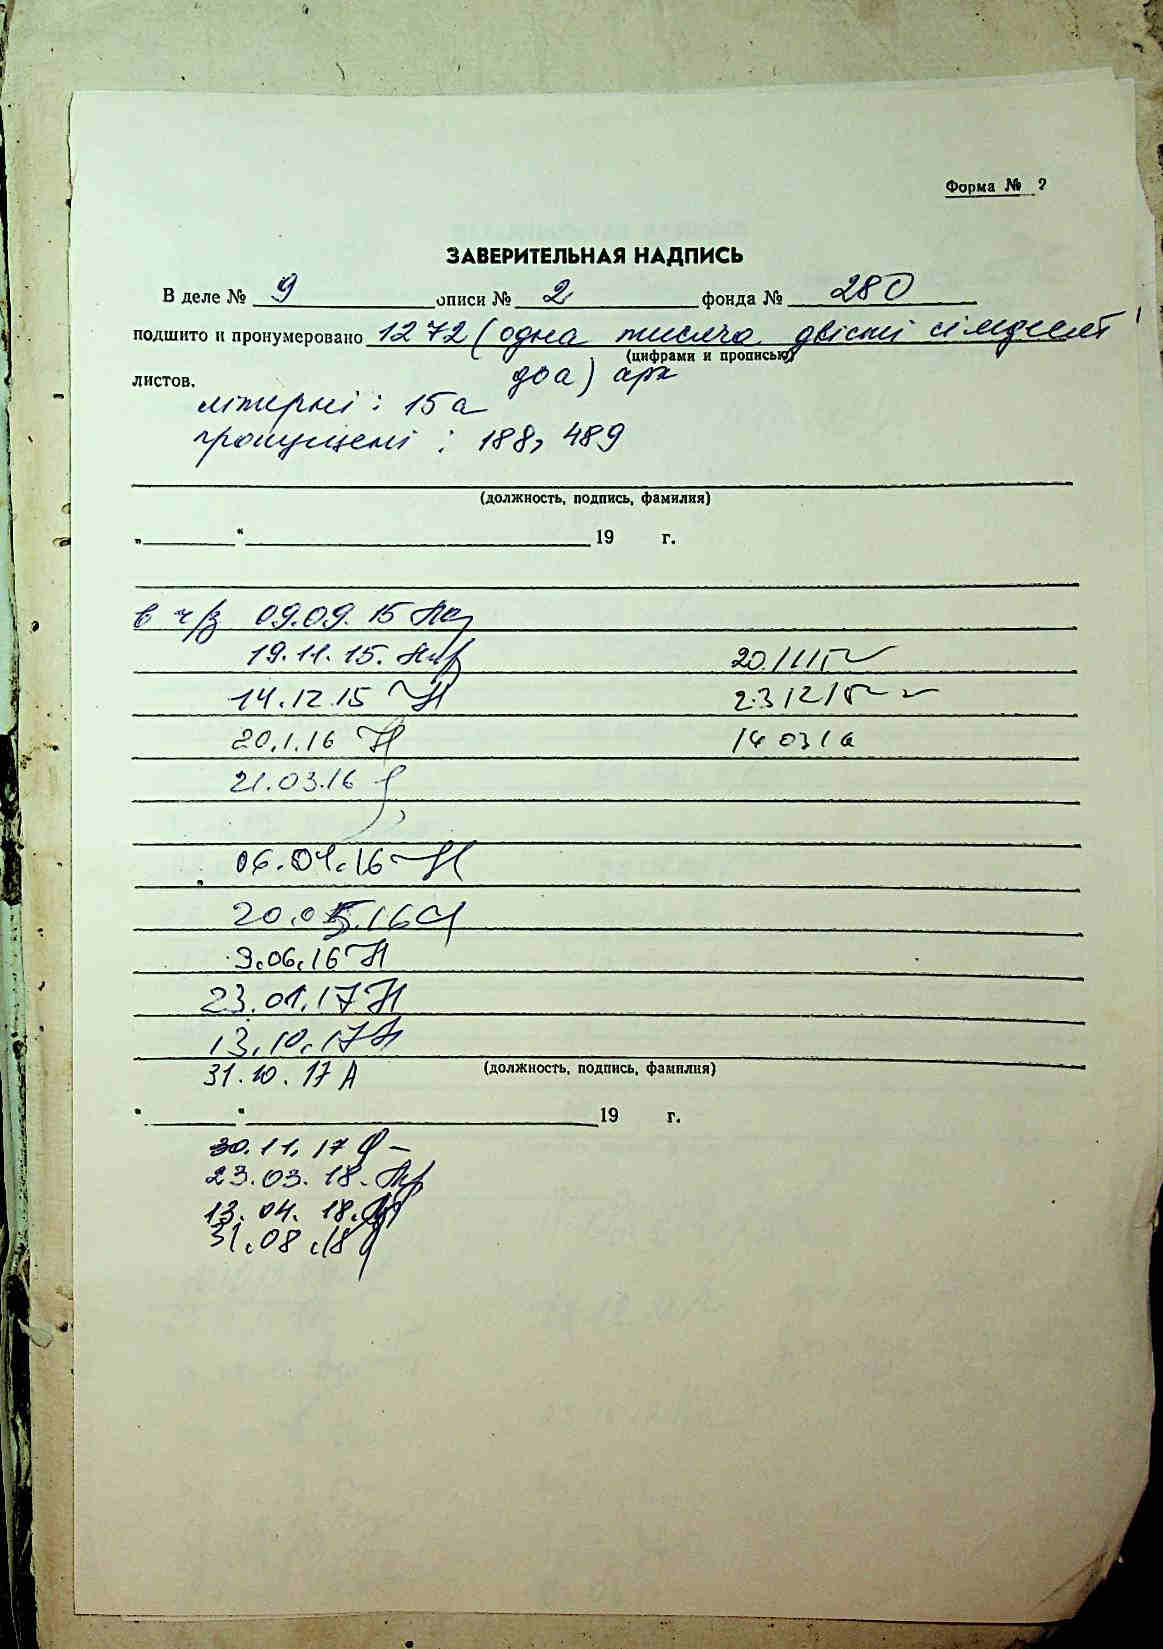 Форма № 2
ЗАВЕРИТЕЛЬНАЯ НАДПИСЬ
В деле № 9 описи № 2 фонда № 280
подшито и пронумеровано 1272 (одна тисяча двісті сімдесят
(цифрами и прописью)
листов. два) арк
літерні : 15а
пропущені : 188, 489
(должность, подпись, фамилия)
„ “ 19 г.
в ч/з 09.09.15
19.11.15. 20.11.15
14.12.15 23.12.15
20.1.16 14 03 16
21.03.16
06.04.16
20.05.16
9.06.16
23.01.17
13.10.17
31.10.17
(должность, подпись, фамилия)
„ “ 19 г.
30.11.17
23.03.18.
13.04.18.
31.08.18